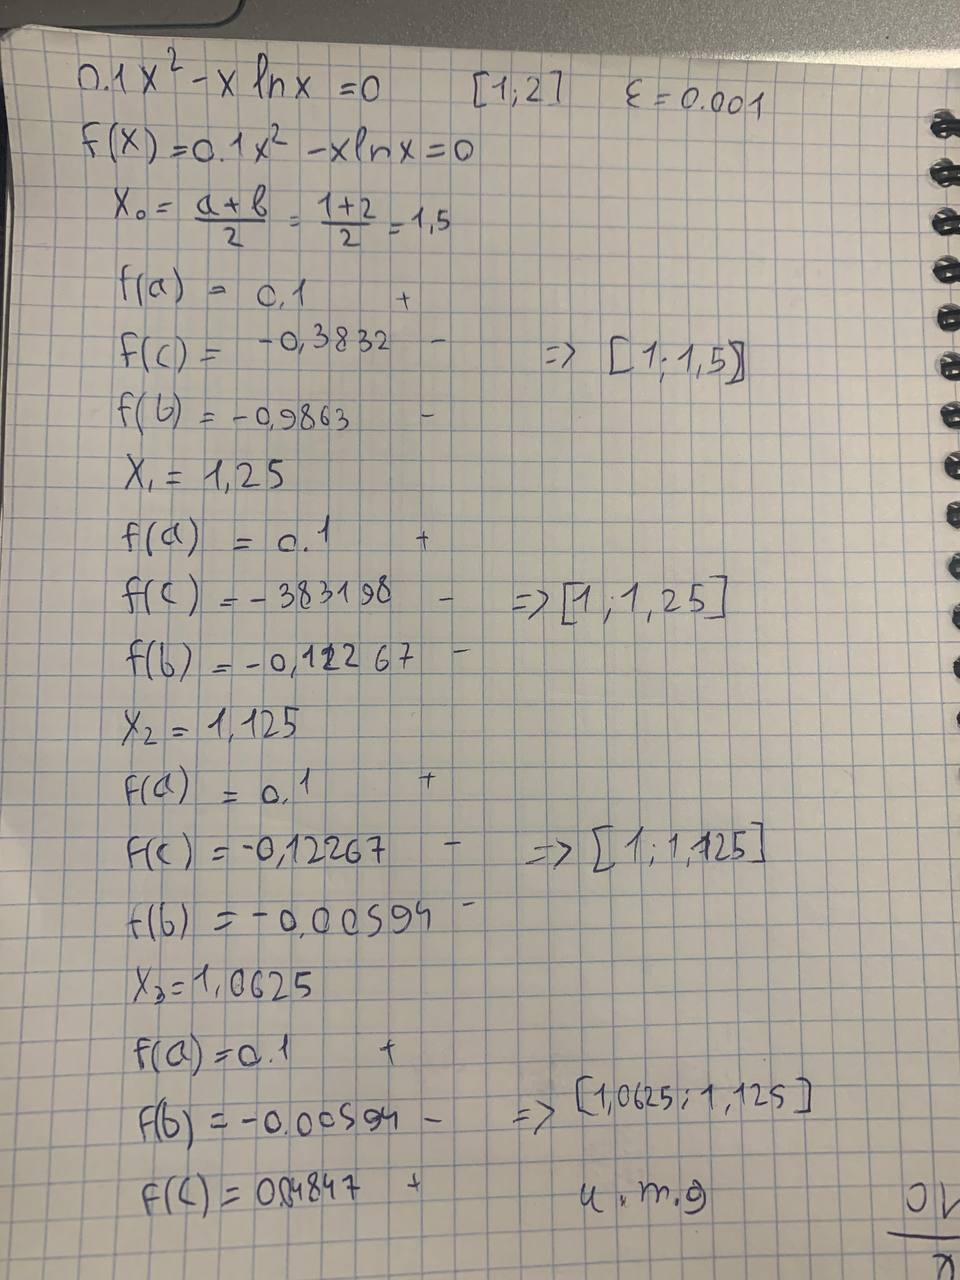 0.1x² - x ln x = 0 [1;2] ε = 0.001
f(x) = 0.1x² - x ln x = 0
x₀ = (a+b)/2 = (1+2)/2 = 1,5
f(a) = 0,1 +
f(c) = -0,3832 - => [1; 1,5]
f(b) = -0,9863 -
x₁ = 1,25
f(a) = 0.1 +
f(c) = -383198 - => [1; 1,25]
f(b) = -0,12267 -
x₂ = 1,125
f(a) = 0,1 +
f(c) = -0,12267 - => [1; 1,125]
f(b) = -0,00594 -
x₃ = 1,0625
f(a) = 0.1 +
f(b) = -0.00594 - => [1,0625; 1,125]
f(c) = 0,04847 + и.т.д